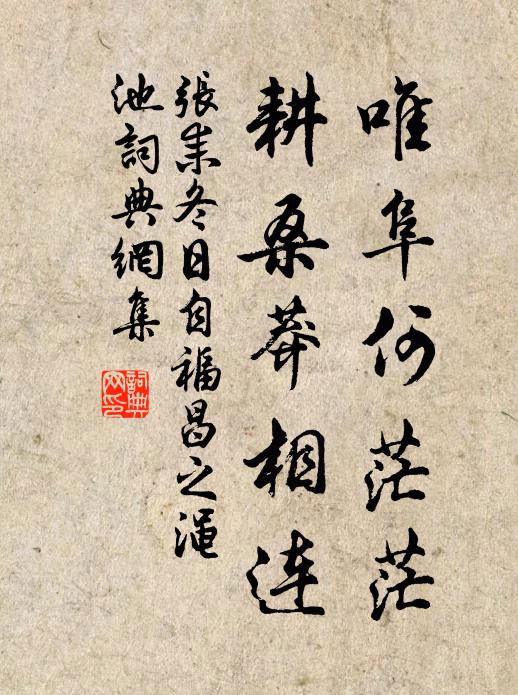 唯阜何茫茫
耕桑莽相连
張耒冬日自福昌之澠
池詞典網集
詞典
网印